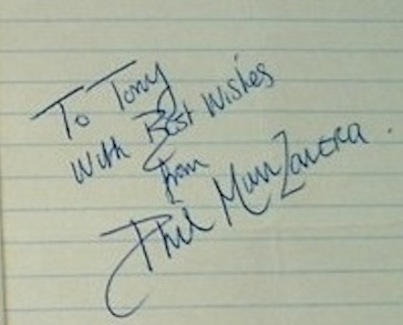 To Tony
With Best Wishes
from
Phil ManZanera.